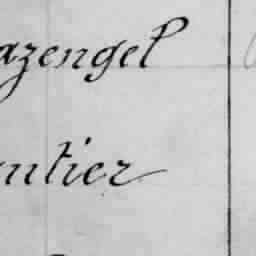 azengel
utier